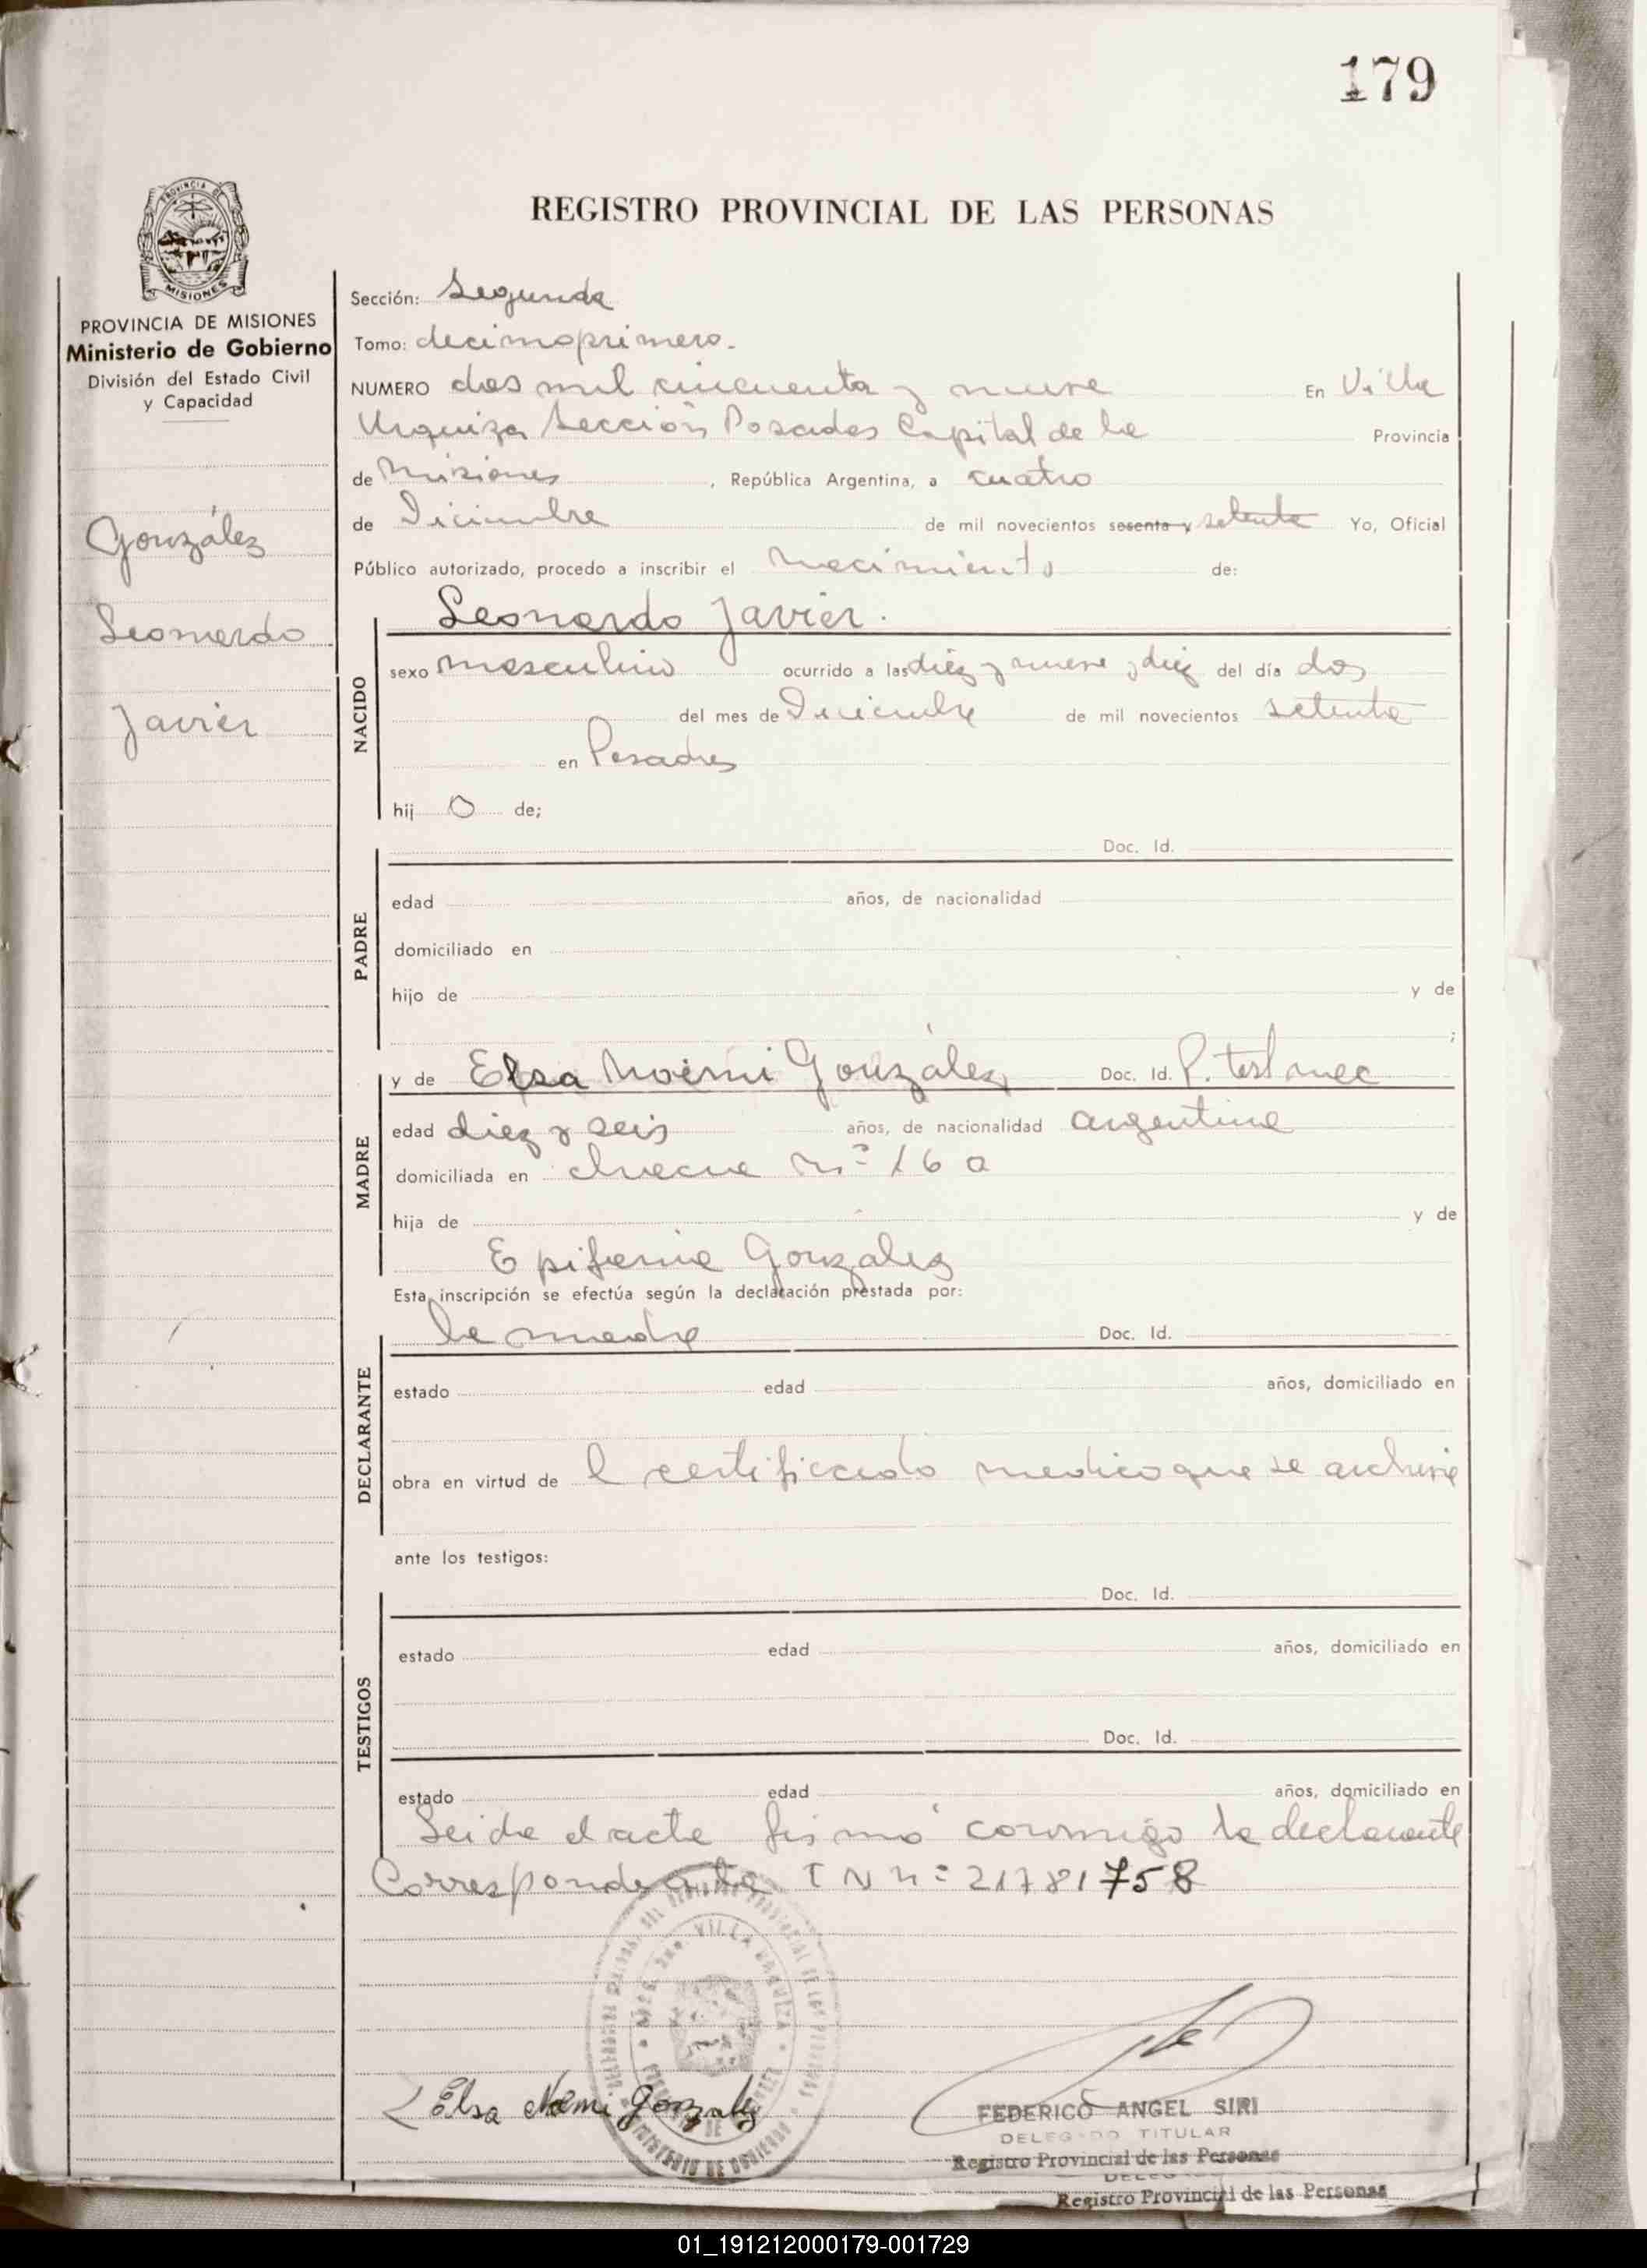 179
REGISTRO PROVINCIAL DE LAS PERSONAS
PROVINCIA DE MISIONES
Ministerio de Gobierno
División del Estado Civil
y Capacidad
González
Leonardo
Javier
Sección: Segunda
Tomo: decimoprimero.
NUMERO dos mil cincuenta y nueve En Villa
Urquiza Sección Posadas Capital de la Provincia
de Misiones, República Argentina, a cuatro
de Diciembre de mil novecientos sesenta y setenta Yo, Oficial
Público autorizado, procedo a inscribir el nacimiento de:
NACIDO
Leonardo Javier.
sexo masculino ocurrido a las diez y nueve y diez del día dos
del mes de Diciembre de mil novecientos setenta
en Posadas
hij o de;
PADRE
Doc. Id.
edad años, de nacionalidad
domiciliado en
hijo de y de
;
MADRE
y de Elsa Noemi González Doc. Id. P.
edad diez y seis años, de nacionalidad argentina
domiciliada en chacra nº 16 a
hija de y de
Epifania González
Esta inscripción se efectúa según la declaración prestada por:
DECLARANTE
la madre Doc. Id.
estado edad años, domiciliado en
obra en virtud de l certificado medico que se archiva
ante los testigos:
TESTIGOS
Doc. Id.
estado edad años, domiciliado en
Doc. Id.
estado edad años, domiciliado en
Leida el acta firmó conmigo la declarante
Corresponde I N nº 21781758
VILLA URQUIZA
Elsa Noemi Gonzalez
FEDERICO ANGEL SIRI
DELEGADO TITULAR
Registro Provincial de las Personas
Registro Provincial de las Personas
01_191212000179-001729